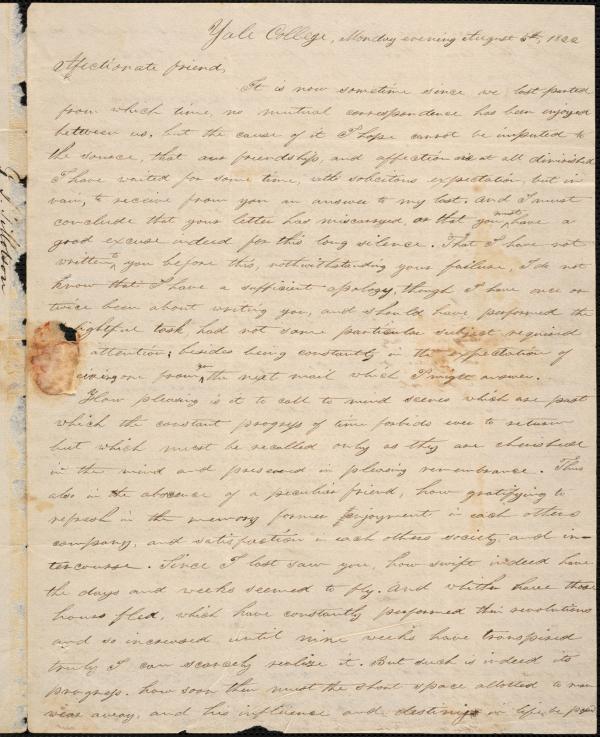 Yale College, Monday evening August 5th, 1822
Affectionate friend,
It is now sometime since we last parted
from which time, no mutual correspondence has been enjoyed
between us, but the cause of it I hope cannot be imputed to
the source, that our friendship, and affection is at all diminished
I have waited for some time, with solicitous expectation, but in
vain, to receive from you an answer to my last. And I must
conclude that your letter has miscarried, or that you must have a
good excuse indeed for this long silence. That I have not
written to you before this, nothwithstanding your failure, I do not
know that I have a sufficient apology, though I have once or
twice been about writing you, and should have performed the
lightful task had not some particular subject required
attention; besides being constantly in the expectation of
ceiving one from yo the next mail which I might answer.
How pleasing is it to call to mind scenes which are past
which the constant progress of time forbids ever to return
but which must be recalled only as they are cherished
in the mind and preserved in pleasing remembrance. Thus
also in the absence of a peculiar friend, how gratifying to
refresh in the memory former enjoyment in each others
company, and satisfaction in each others society, and in-
tercourse. Since I last saw you, how swift indeed have
the days and weeks seemed to fly. And whither have those
hours fled, which have constantly performed their revolutions
and so increased until nine weeks have transpired
truly I can scarcely realize it. But such is indeed its
progress. how soon then must the short space allotted to man
wear away, and his influence and destiny in life be
G. S. Tillotson